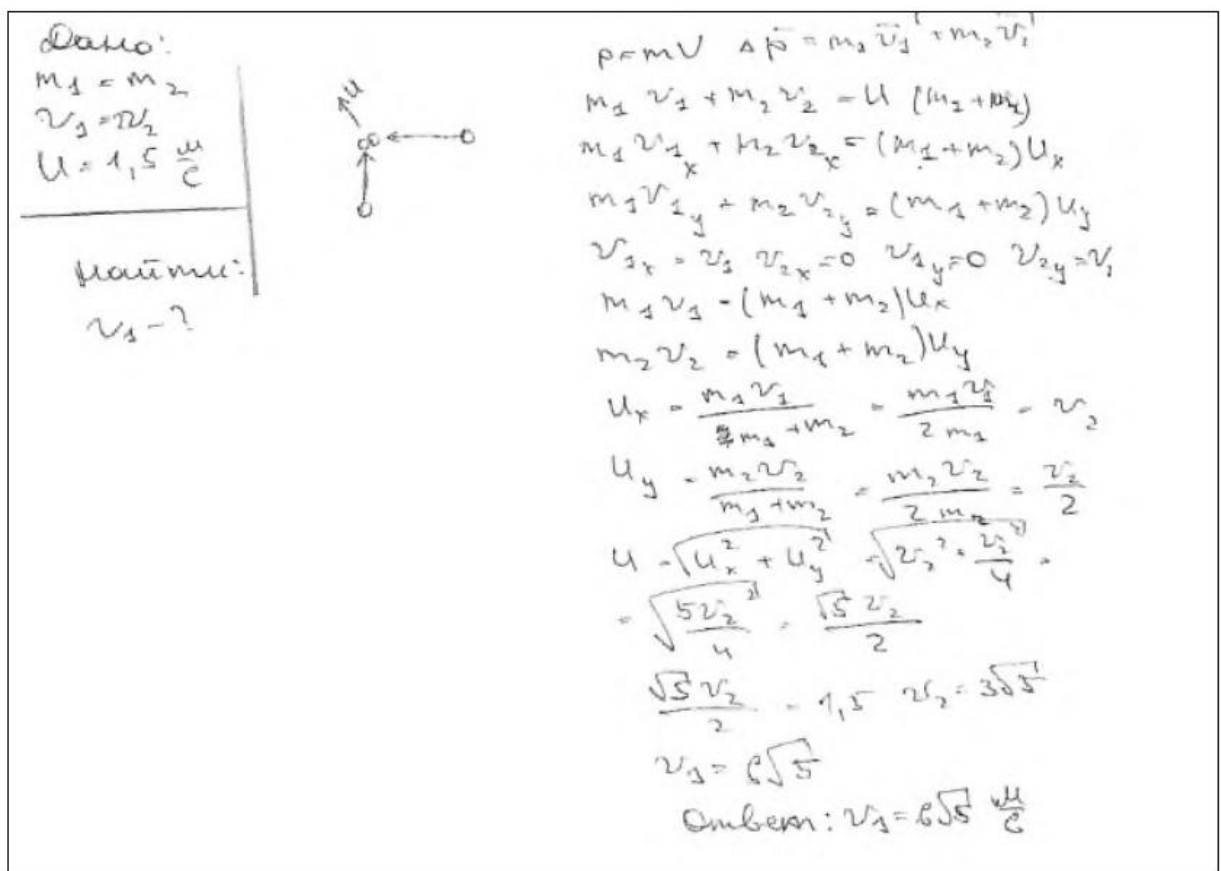 Дано:
m₁ = m₂
v₁ = 2v₂
U = 1,5 м/с
Найти:
v₁ - ?
U
p = mV Δp̄ = m₁v̄₁' + m₂v̄₂'
m₁ v₁ + m₂ v₂ = U (m₁ + m₂)
m₁ v₁ₓ + m₂ v₂ₓ = (m₁ + m₂) Uₓ
m₁ v₁y + m₂ v₂y = (m₁ + m₂) Uy
v₁ₓ = v₁ v₂ₓ = 0 v₁y = 0 v₂y = v₂
m₁ v₁ = (m₁ + m₂) Uₓ
m₂ v₂ = (m₁ + m₂) Uy
Uₓ = m₁v₁ / (m₁ + m₂) = m₁v₁ / 2m₁ = v₂
Uy = m₂v₂ / (m₁ + m₂) = m₂v₂ / 2m₂ = v₂/2
U = √(Uₓ² + Uy²) = √(v₂² + v₂²/4) =
= √(5v₂²/4) = √5 v₂ / 2
√5 v₂ / 2 = 1,5 v₂ = 3√5
v₁ = 6√5
Ответ: v₁ = 6√5 м/с